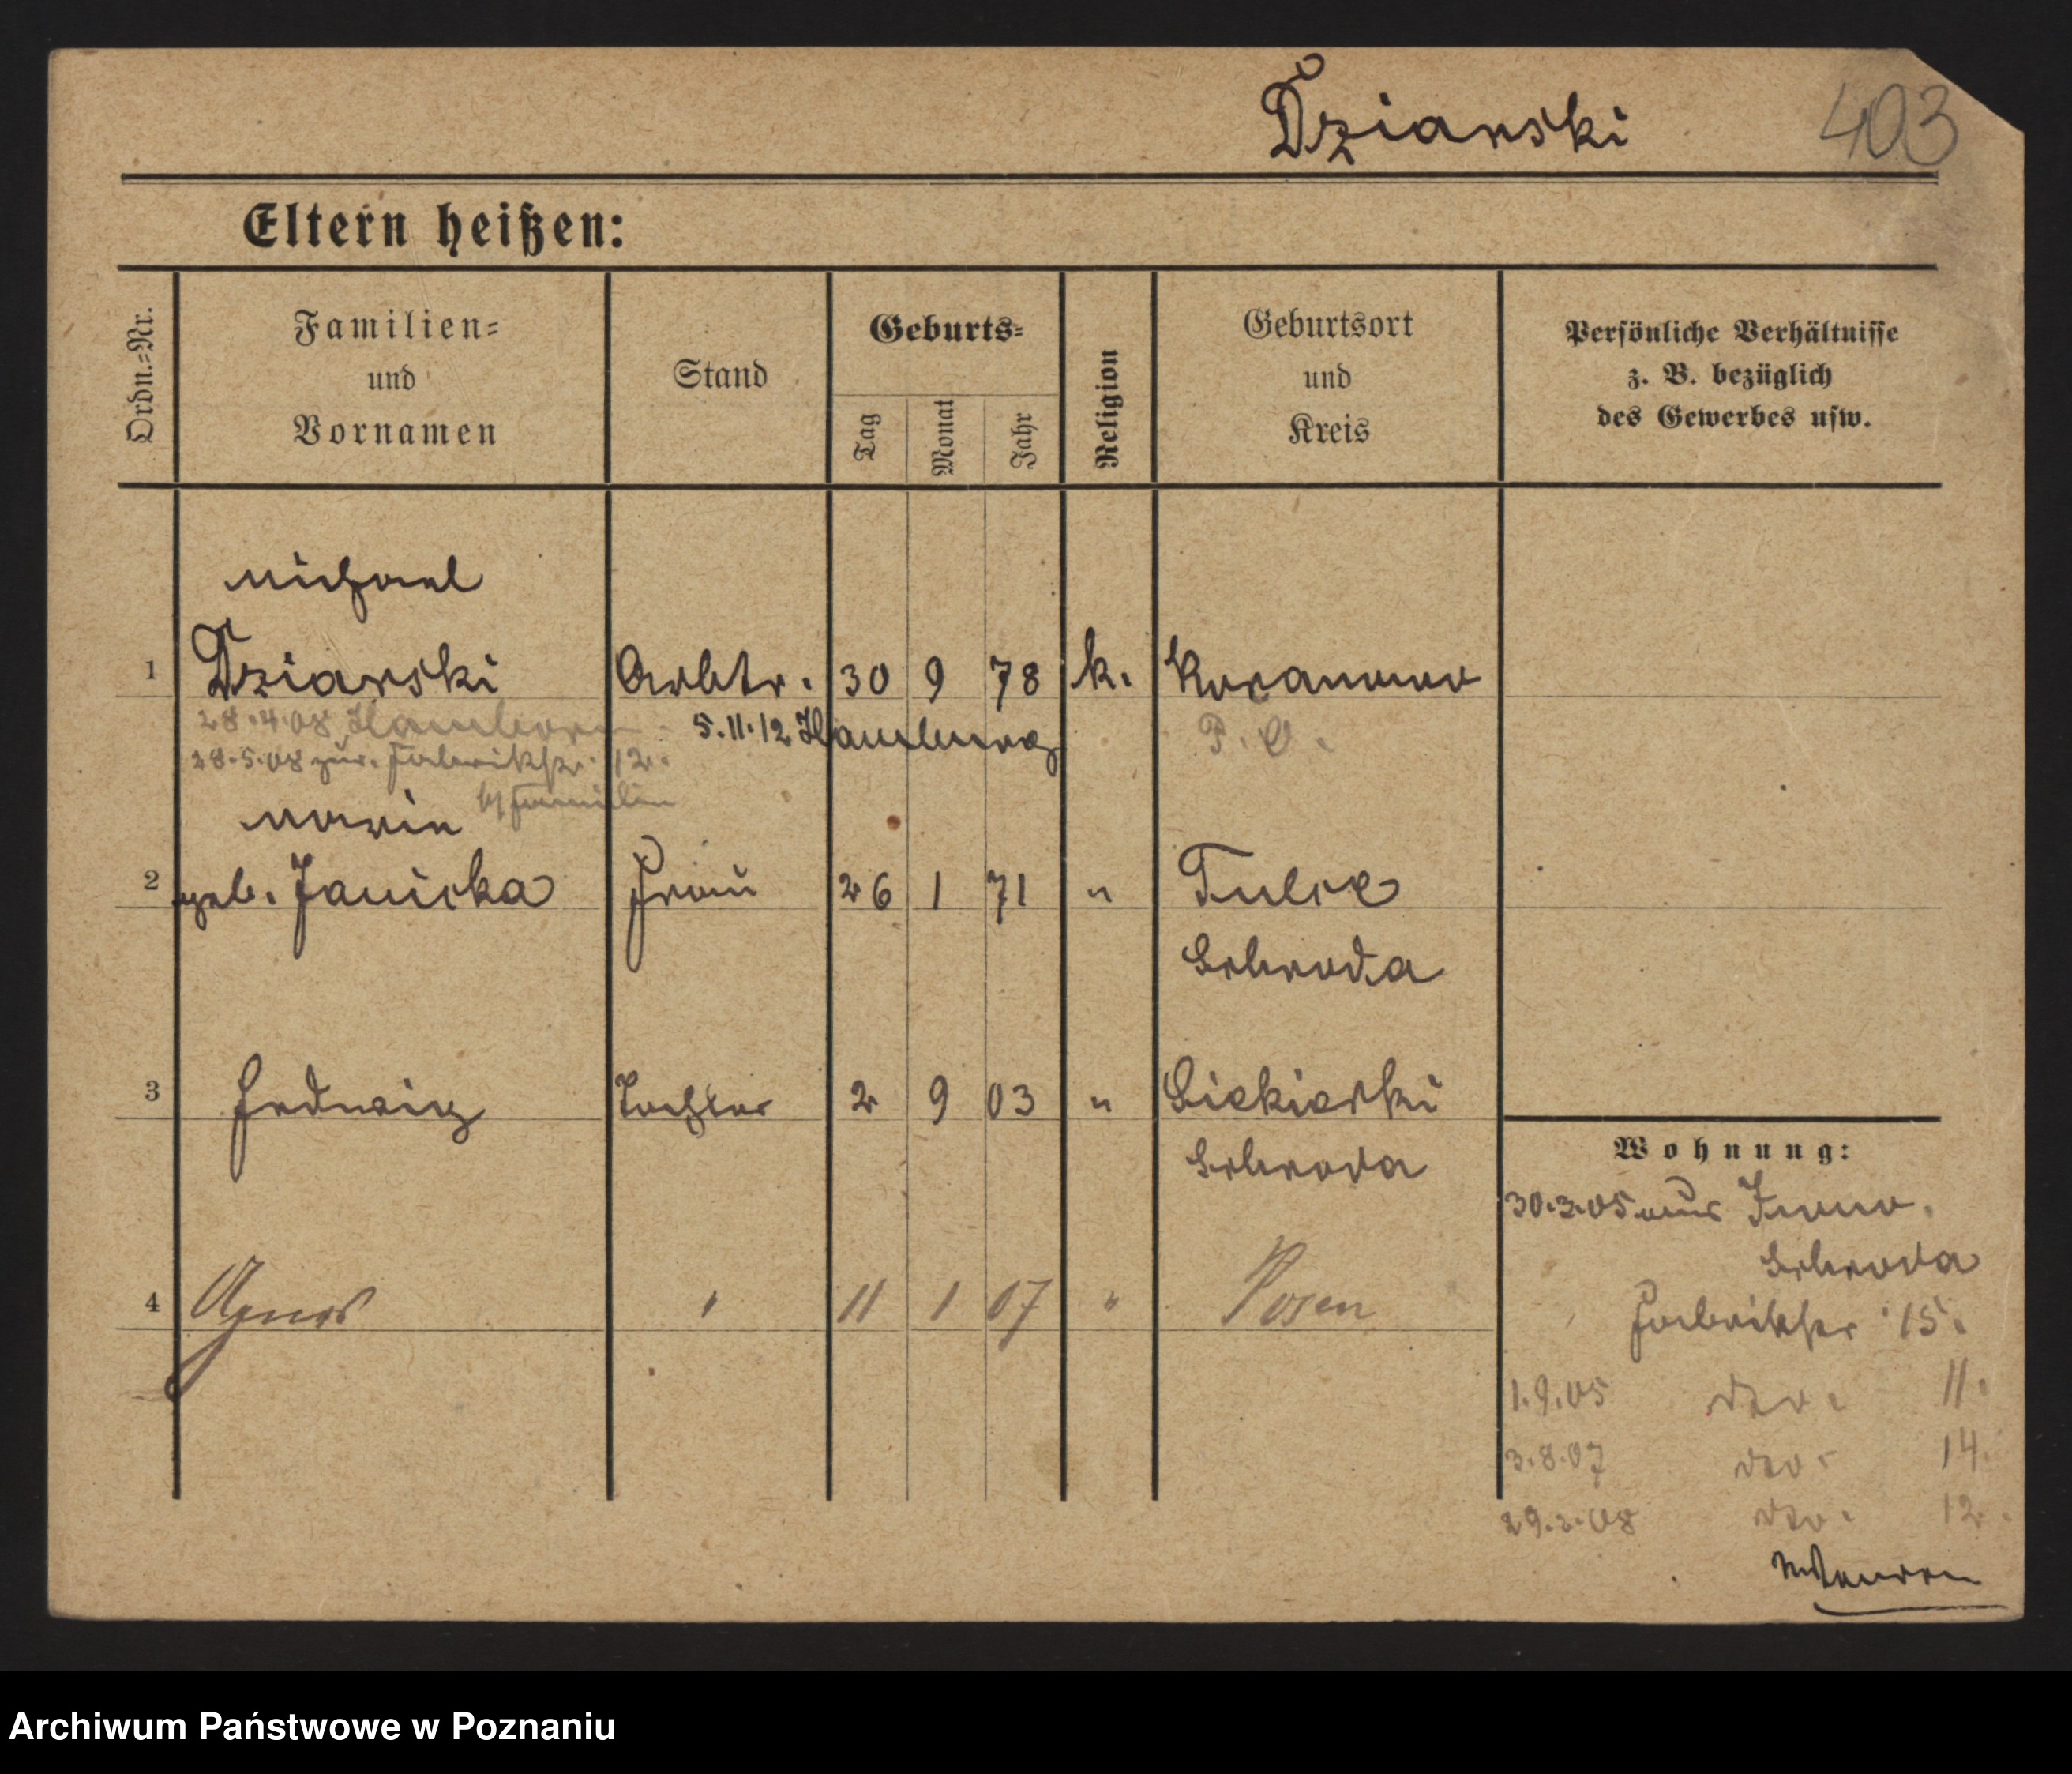 Dzianski 403
Eltern heißen:
Ordn.=Nr.
Familien=
und
Vornamen
Stand
Geburts=
Tag
Monat
Jahr
Religion
Geburtsort
und
Kreis
Persönliche Verhältnisse
z. B. bezüglich
des Gewerbes usw.
Michael
1 Dzianski Arbtr. 30 9 78 k.
28.4.08 5.11.12 Hamburg P. O.
28.5.08 zur. Fabrikstr. 12.
Familie
Marie
2 geb. Janicka Frau 26 1 71 " Tulce
Schroda
3 Hedwig Tochter 2 9 03 " Siekierki
Schroda
4 Agnes " 11 1 07 " Posen
Wohnung:
30.3.05 aus
Schroda
Fabrikstr 15.
1.9.05 dto. 11.
3.8.07 dto. 14.
29.2.08 dto. 12.
Archiwum Państwowe w Poznaniu